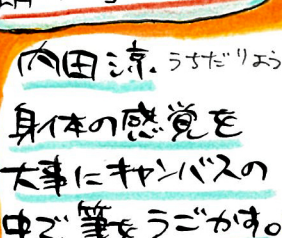 内田涼、うちだりょう
身体の感覚を
大事にキャンバスの
中で筆をうごかす。